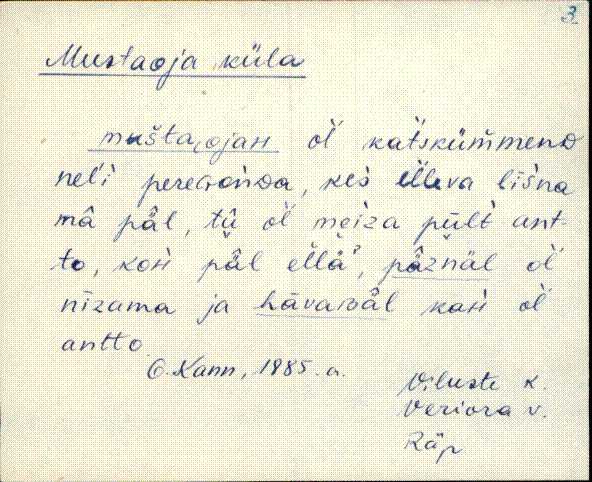 3
Mustaoja küla
muštaojan oĺ katskümmend
neli peregonda, kes ělleva liśna
mâ pǟl, tǖ oĺ meiza pūlt ant-
to, kon pǟl ěllä', pǟžnäl oĺ
nīzama ja hāvawäl kan oĺ
antto.
O. Kann, 1885. a.
Viluste k.
Veriora v.
Räp